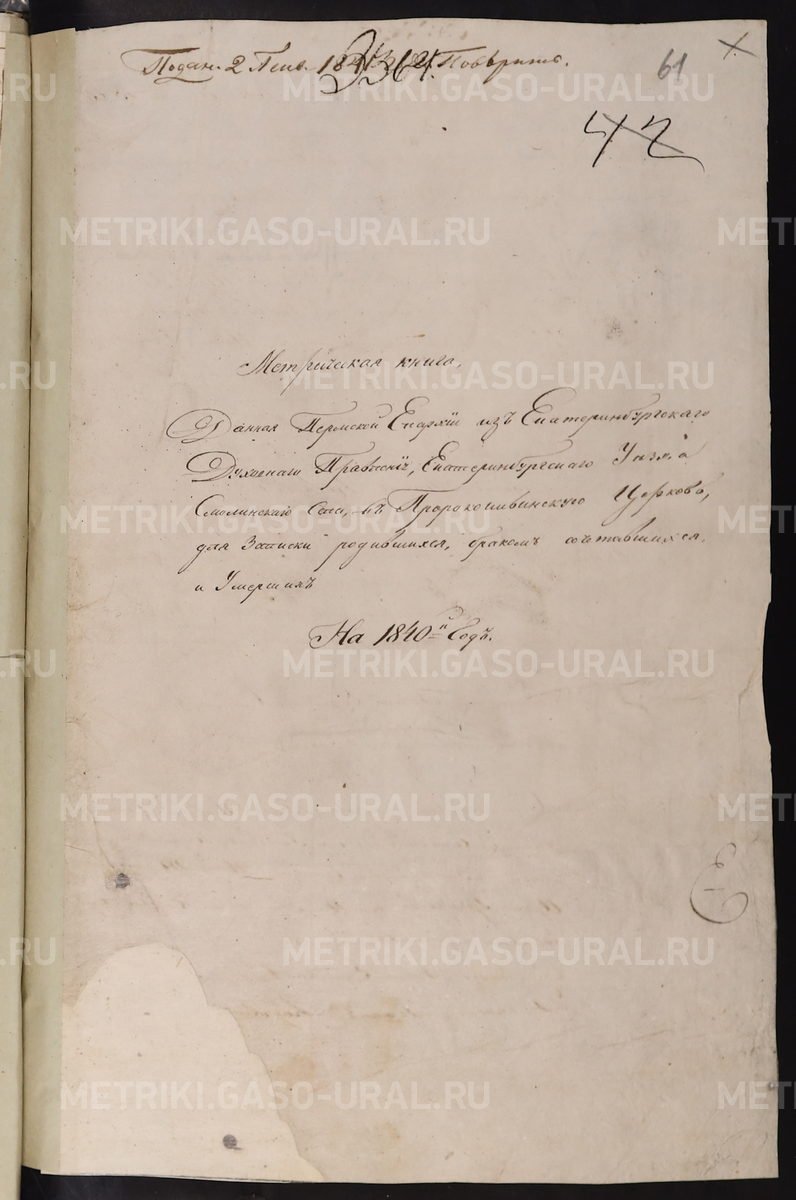 Подан. 2 Генв. 1841 Повѣрить.
364.
61
1.
42
Метрическая книга,
Данная Пермской Епархіи изъ Екатеринбургскаго
Духовнаго Правленія, Екатеринбургскаго Уѣзда
Смолинскаго Села, въ Пророкоильинскую Церковь,
для Записки родившихся, бракомъ сочетавшихся,
и Умершихъ
На 1840й Годъ.
METRIKI.GASO-URAL.RU